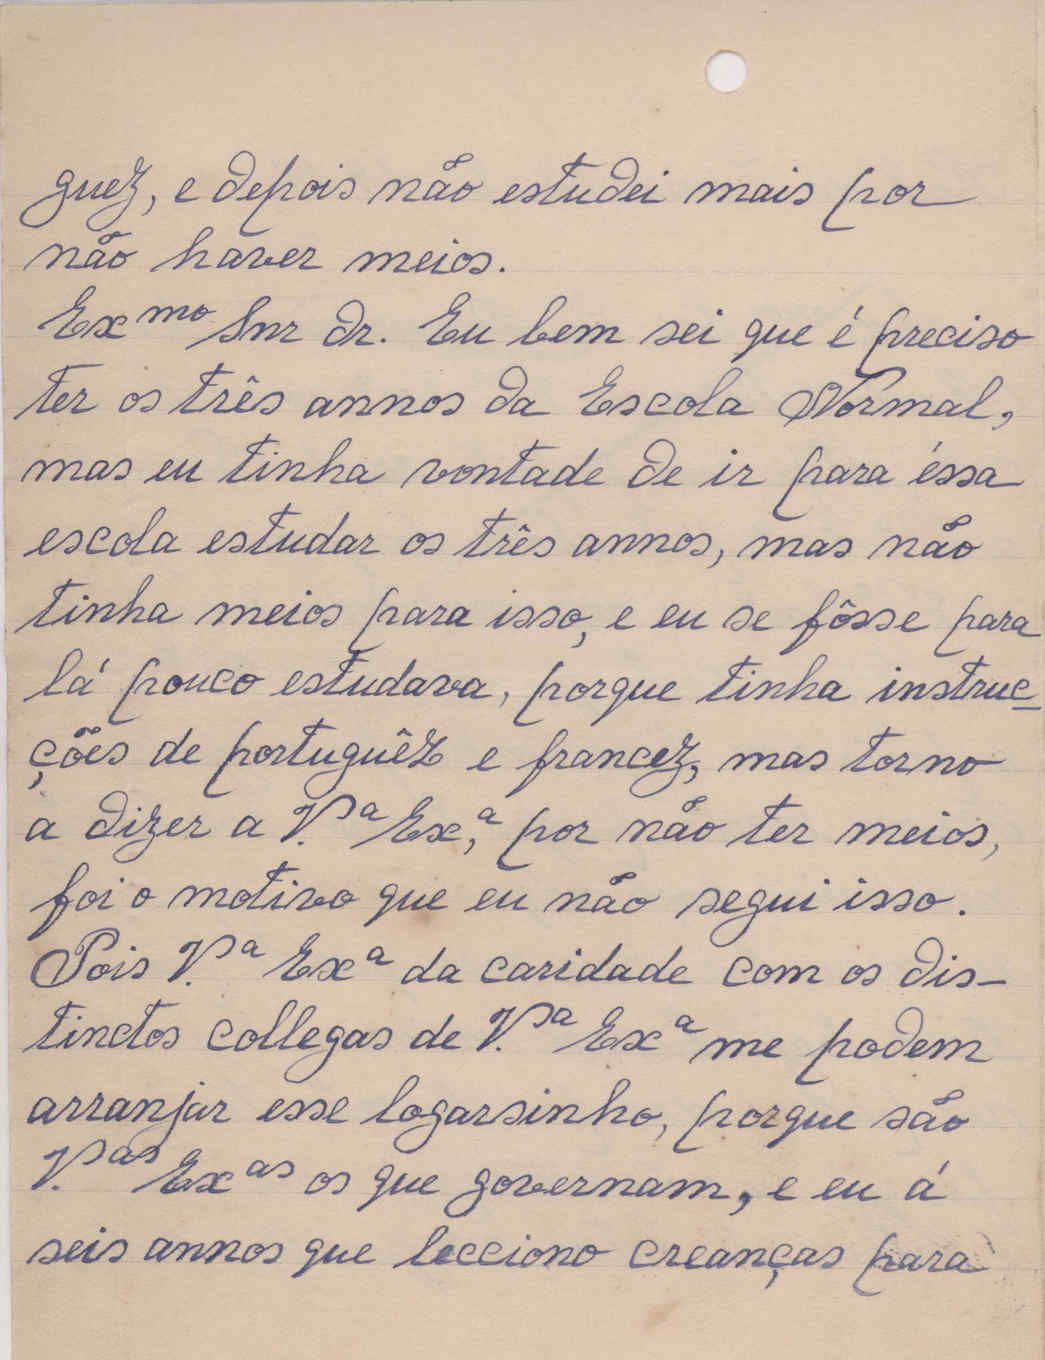 guez, e depois não estudei mais por
não haver meios.
Exmo Snr dr. Eu bem sei que é preciso
ter os três annos da Escola Normal,
mas eu tinha vontade de ir para éssa
escola estudar os três annos, mas não
tinha meios para isso, e eu se fôsse para
lá pouco estudava, porque tinha instruc-
ções de portuguêz e francez, mas torno
a dizer a V.a Ex.a, por não ter meios,
foi o motivo que eu não segui isso.
Pois V.a Exa da caridade com os dis-
tinctos collegas de V.a Exa me podem
arranjar esse logarsinho, porque são
V.as Exas os que governam, e eu á
seis annos que lecciono creanças para